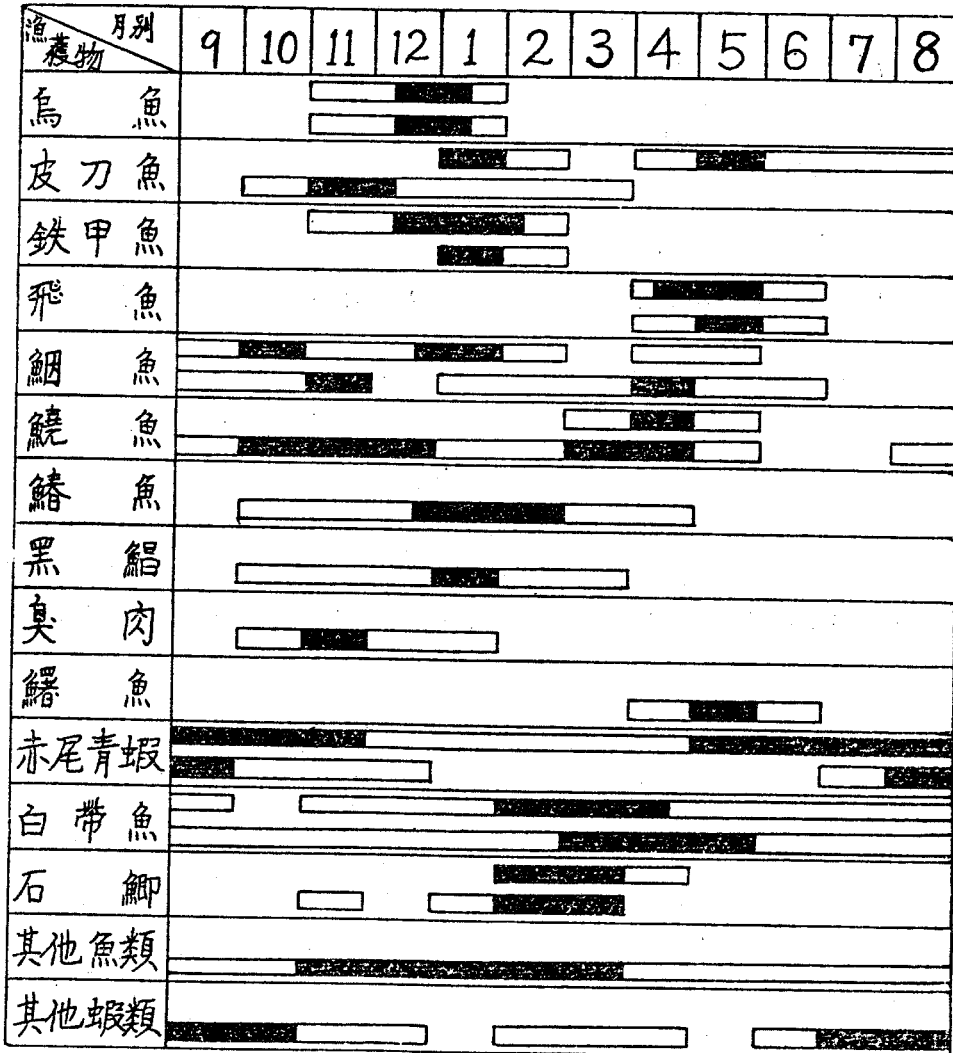 漁獲物 月別 9 10 11 12 1 2 3 4 5 6 7 8
烏魚
皮刀魚
鉄甲魚
飛魚
鮰魚
鱙魚
鰆魚
黑鯧
臭肉
鱰魚
赤尾青蝦
白帶魚
石鯽
其他魚類
其他蝦類